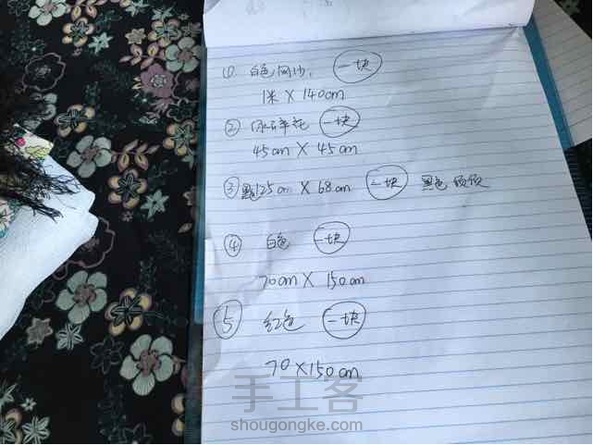 ① 白色网沙, 一块
1米 X 140cm
② 碎花 一块
45cm X 45cm
③ 25cm X 68cm 一块 黑色
④ 白色 一块
70cm X 150cm
5 红色 一块
70 X 150cm
手工客
shougongke.com